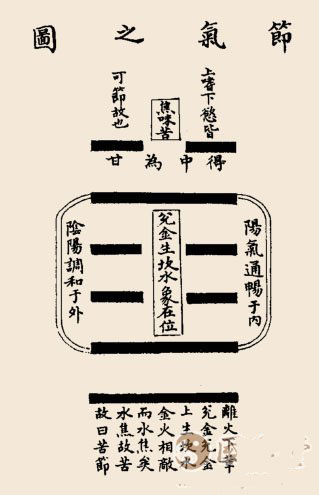 節氣之圖
上嗜下慾皆
焦味苦
可節故也
得中為甘
陽氣通暢于內
兌金生坎水象在位
陰陽調和于外
離火下革
兌金兌金
上生坎水
金火相敵
而水焦矣
水焦故苦
故曰苦節